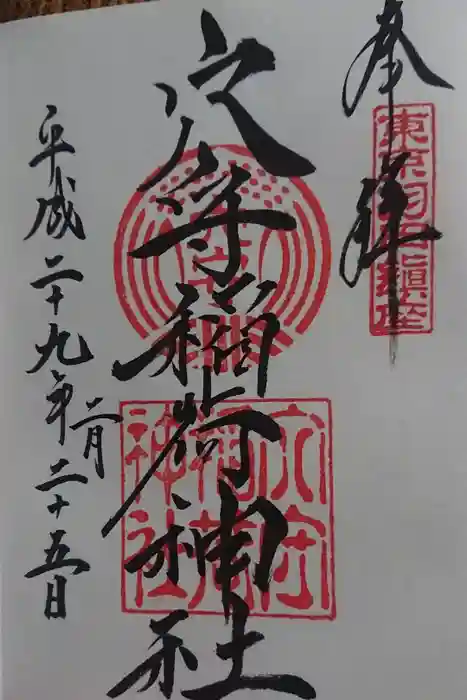 奉拝
東京羽田鎮座
穴守稲荷神社
穴守
稲荷
神社
平成二十九年二月二十五日